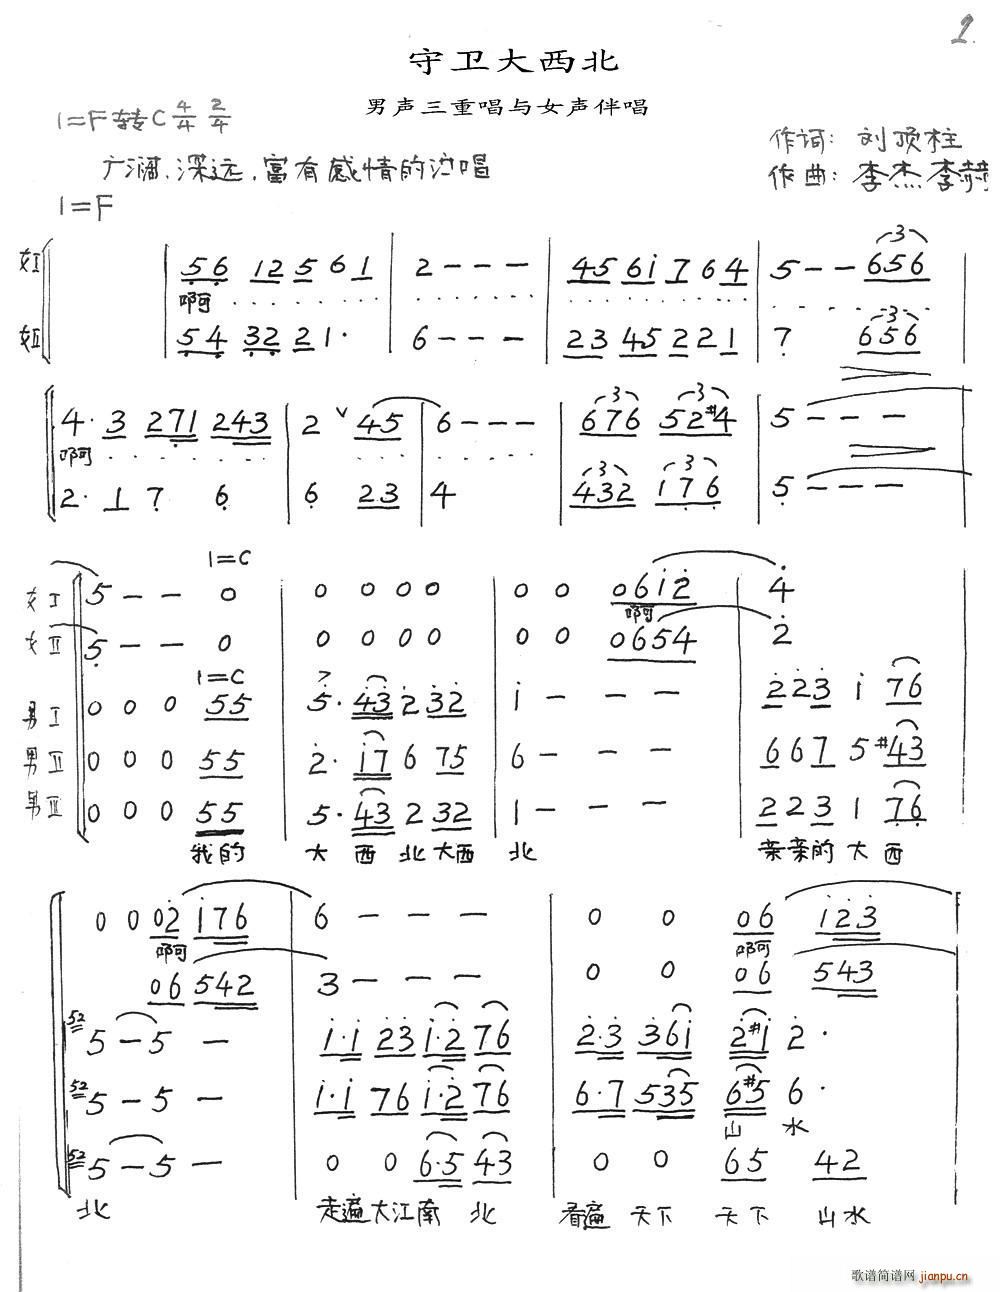 2.
守卫大西北
男声三重唱与女声伴唱
1=F转C 4/4 2/4
作词：刘顶柱
广阔、深远、富有感情的演唱
作曲：李杰 李赫
1=F
女I 56 12 5 6 1 | 2 - - - | 45 61 7 6 4 | 5 - - 656
啊
女II 54 32 21· | 6 - - - | 23 45 2 2 1 | 7 656
4· 3 271 243 | 2 ∨ 45 | 6 - - - | 676 52#4 | 5 - - -
啊
2· 1 7 6 | 6 23 | 4 | 432 176 | 5 - - -
1=C
女I 5 - - 0 | 0 0 0 0 | 0 0 0612 | 4
啊
女II 5 - - 0 | 0 0 0 0 | 0 0 0654 | 2
1=C
男I 0 0 0 55 | 5· 43 2 32 | 1 - - - | 2 2 3 1 76
男II 0 0 0 55 | 2· 17 6 75 | 6 - - - | 6 6 7 5 #43
男III 0 0 0 55 | 5· 43 2 32 | 1 - - - | 2 2 3 1 76
我的 大 西 北大西 北 亲亲的 大 西
0 0 02 176 | 6 - - - | 0 0 06 123
啊 啊
06 542 | 3 - - - | 0 0 06 543
52 5 - 5 - | 1·1 23 1·2 76 | 2·3 361 2#1 2·
52 5 - 5 - | 1·1 76 1·2 76 | 6·7 535 6#5 6·
山 水
52 5 - 5 - | 0 0 6·5 43 | 0 0 65 42
北 走遍大江南 北 看遍 天下 天下 山水
歌谱简谱网 jianpu.cn